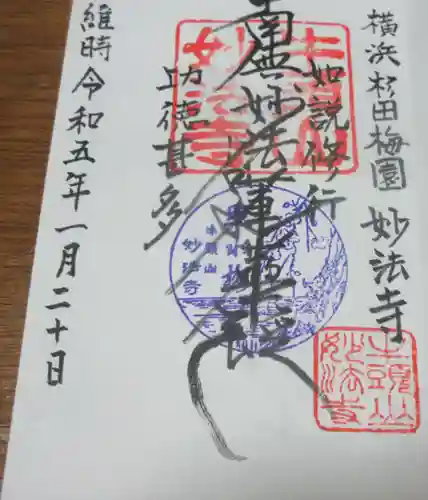 横浜杉田梅園 妙法寺
如説修行
南無妙法蓮華経
功徳甚多
維時令和五年一月二十日
牛頭山
妙法寺
牛頭山
妙法寺